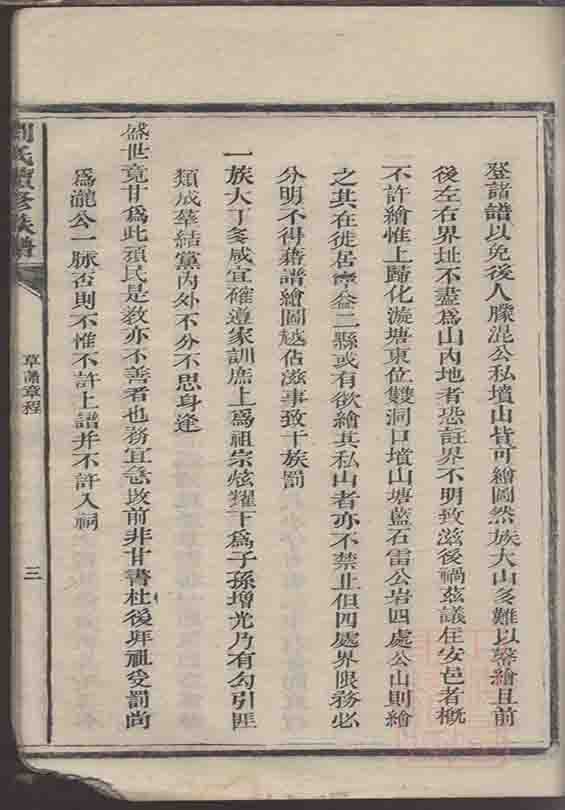 登諸譜以免後人朦混公私墳山皆可繪圖然族大山多難以槩繪且前
後左右界址不盡爲山內地者恐註界不明致滋後禍兹議住安邑者槪
不許繪惟上歸化漩塘東位雙洞口墳山塘藍石雷公岩四處公山則繪
之其在徙居寧益二縣或有欲繪其私山者亦不禁止但四處界限務必
分明不得藉譜繪圖越佔滋事致干族罰
一族大丁多咸宜確遵家訓庶上爲祖宗炫耀下爲子孫增光乃有勾引匪
類成羣結黨內外不分不思身逢
盛世竟甘爲此頑民是教亦不善者也務宜急改前非甘書杜後拜祖受罰尚
爲瀧公一脉否則不惟不許上譜并不許入祠
劉氏續修族譜
草譜章程
三